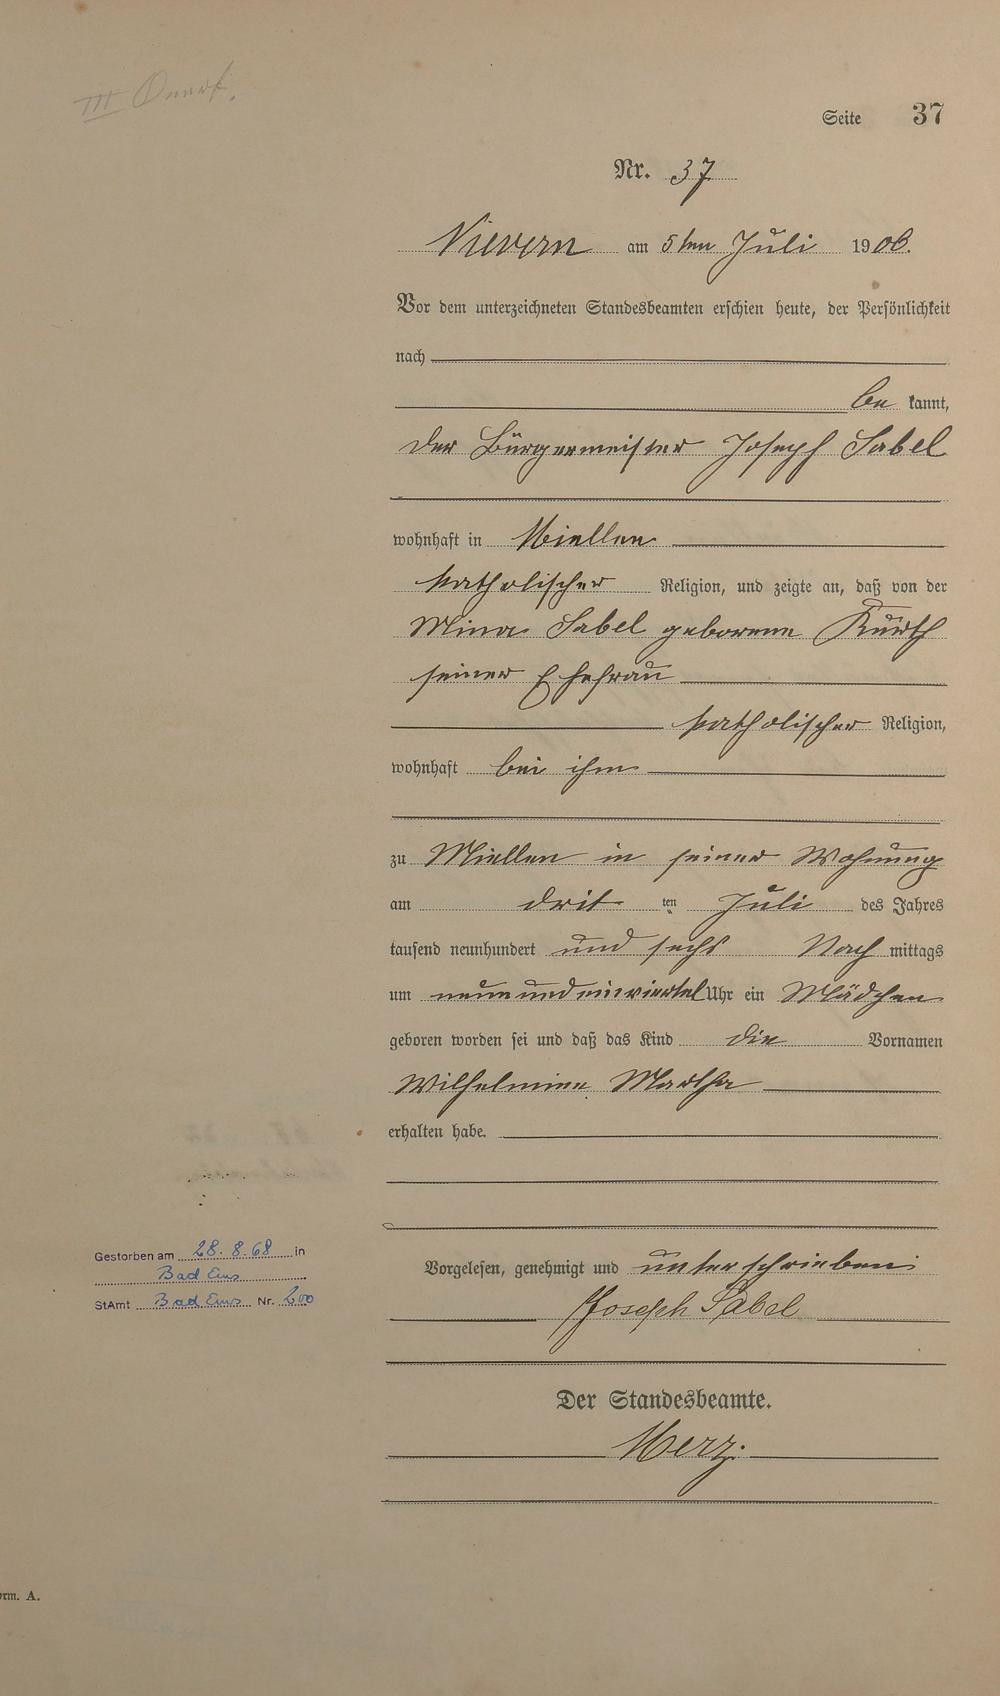 III
Seite 37
Nr. 37
Nievern am 5ten Juli 1906.
Vor dem unterzeichneten Standesbeamten erschien heute, der Persönlichkeit
nach
be kannt,
der Bürgermeister Joseph Sabel
wohnhaft in Miellen
katholischer Religion, und zeigte an, daß von der
Mina Sabel geborene Kurth
seiner Ehefrau
katholischer Religion,
wohnhaft bei ihm
zu Miellen in seiner Wohnung
am drit ten Juli des Jahres
tausend neunhundert und sechs Nach mittags
um neun und einviertel Uhr ein Mädchen
geboren worden sei und daß das Kind die Vornamen
Wilhelmine Martha
erhalten habe.
Gestorben am 28.8.68 in
Bad Ems
StAmt Bad Ems Nr. 200
Vorgelesen, genehmigt und unterschrieben
Joseph Sabel
Der Standesbeamte.
Merz.
orm. A.